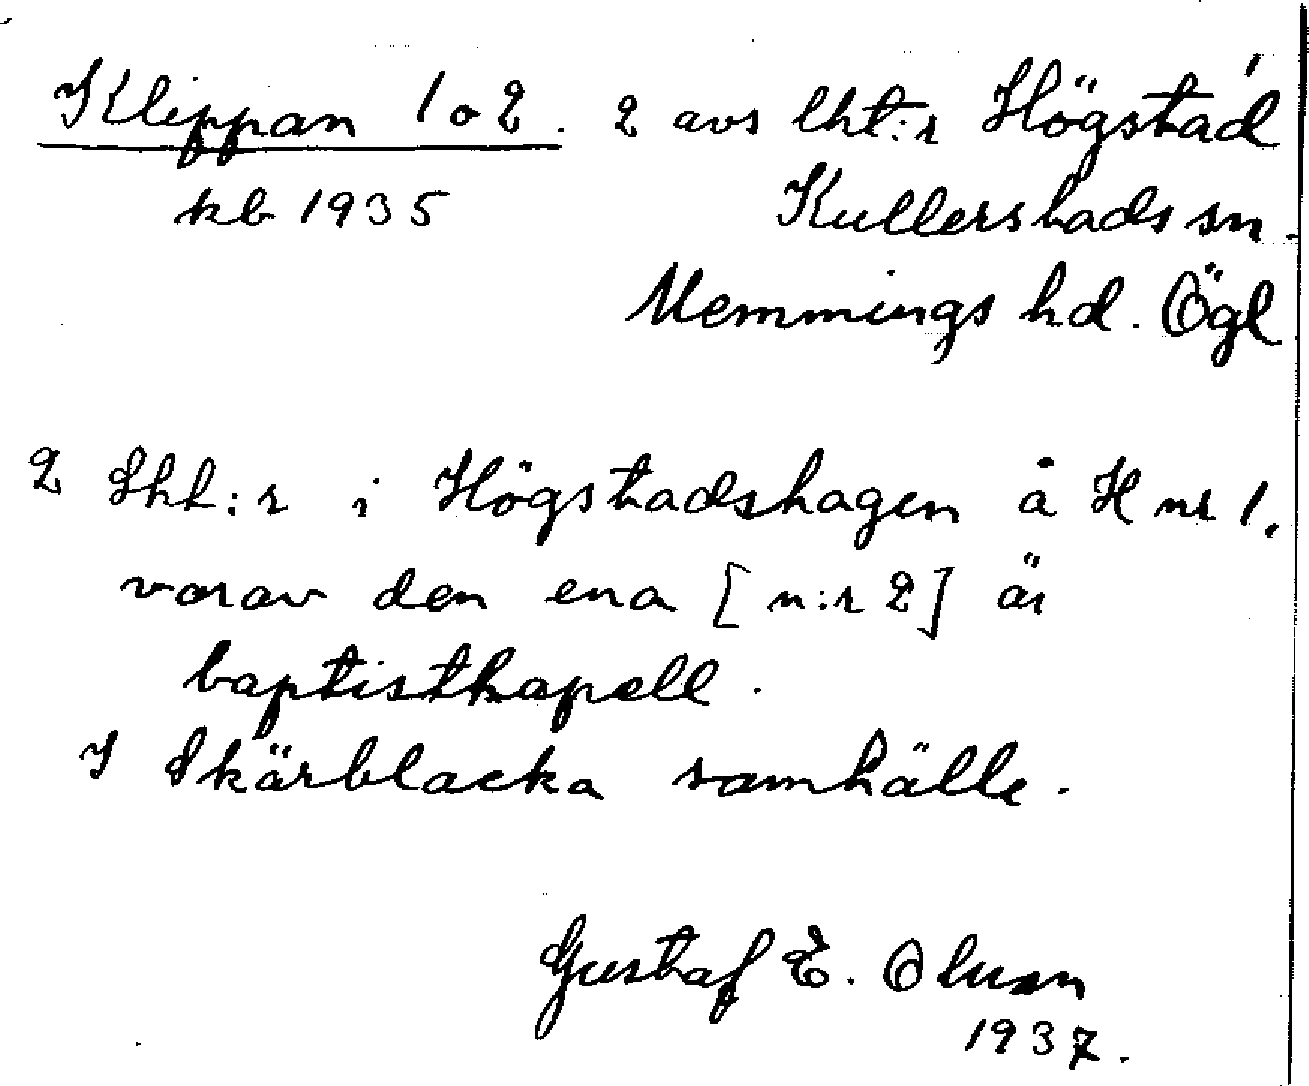 Klippan 1 o 2. 2 avs lht:r Högstad
kb 1935 Kullerstads sn.
Memmings hd. Ögl
2 Lht:r i Högstadshagen å H nr 1.
varav den ena [n:r 2] är
baptistkapell.
I Skärblacka samhälle.
Gustaf E.
1937.